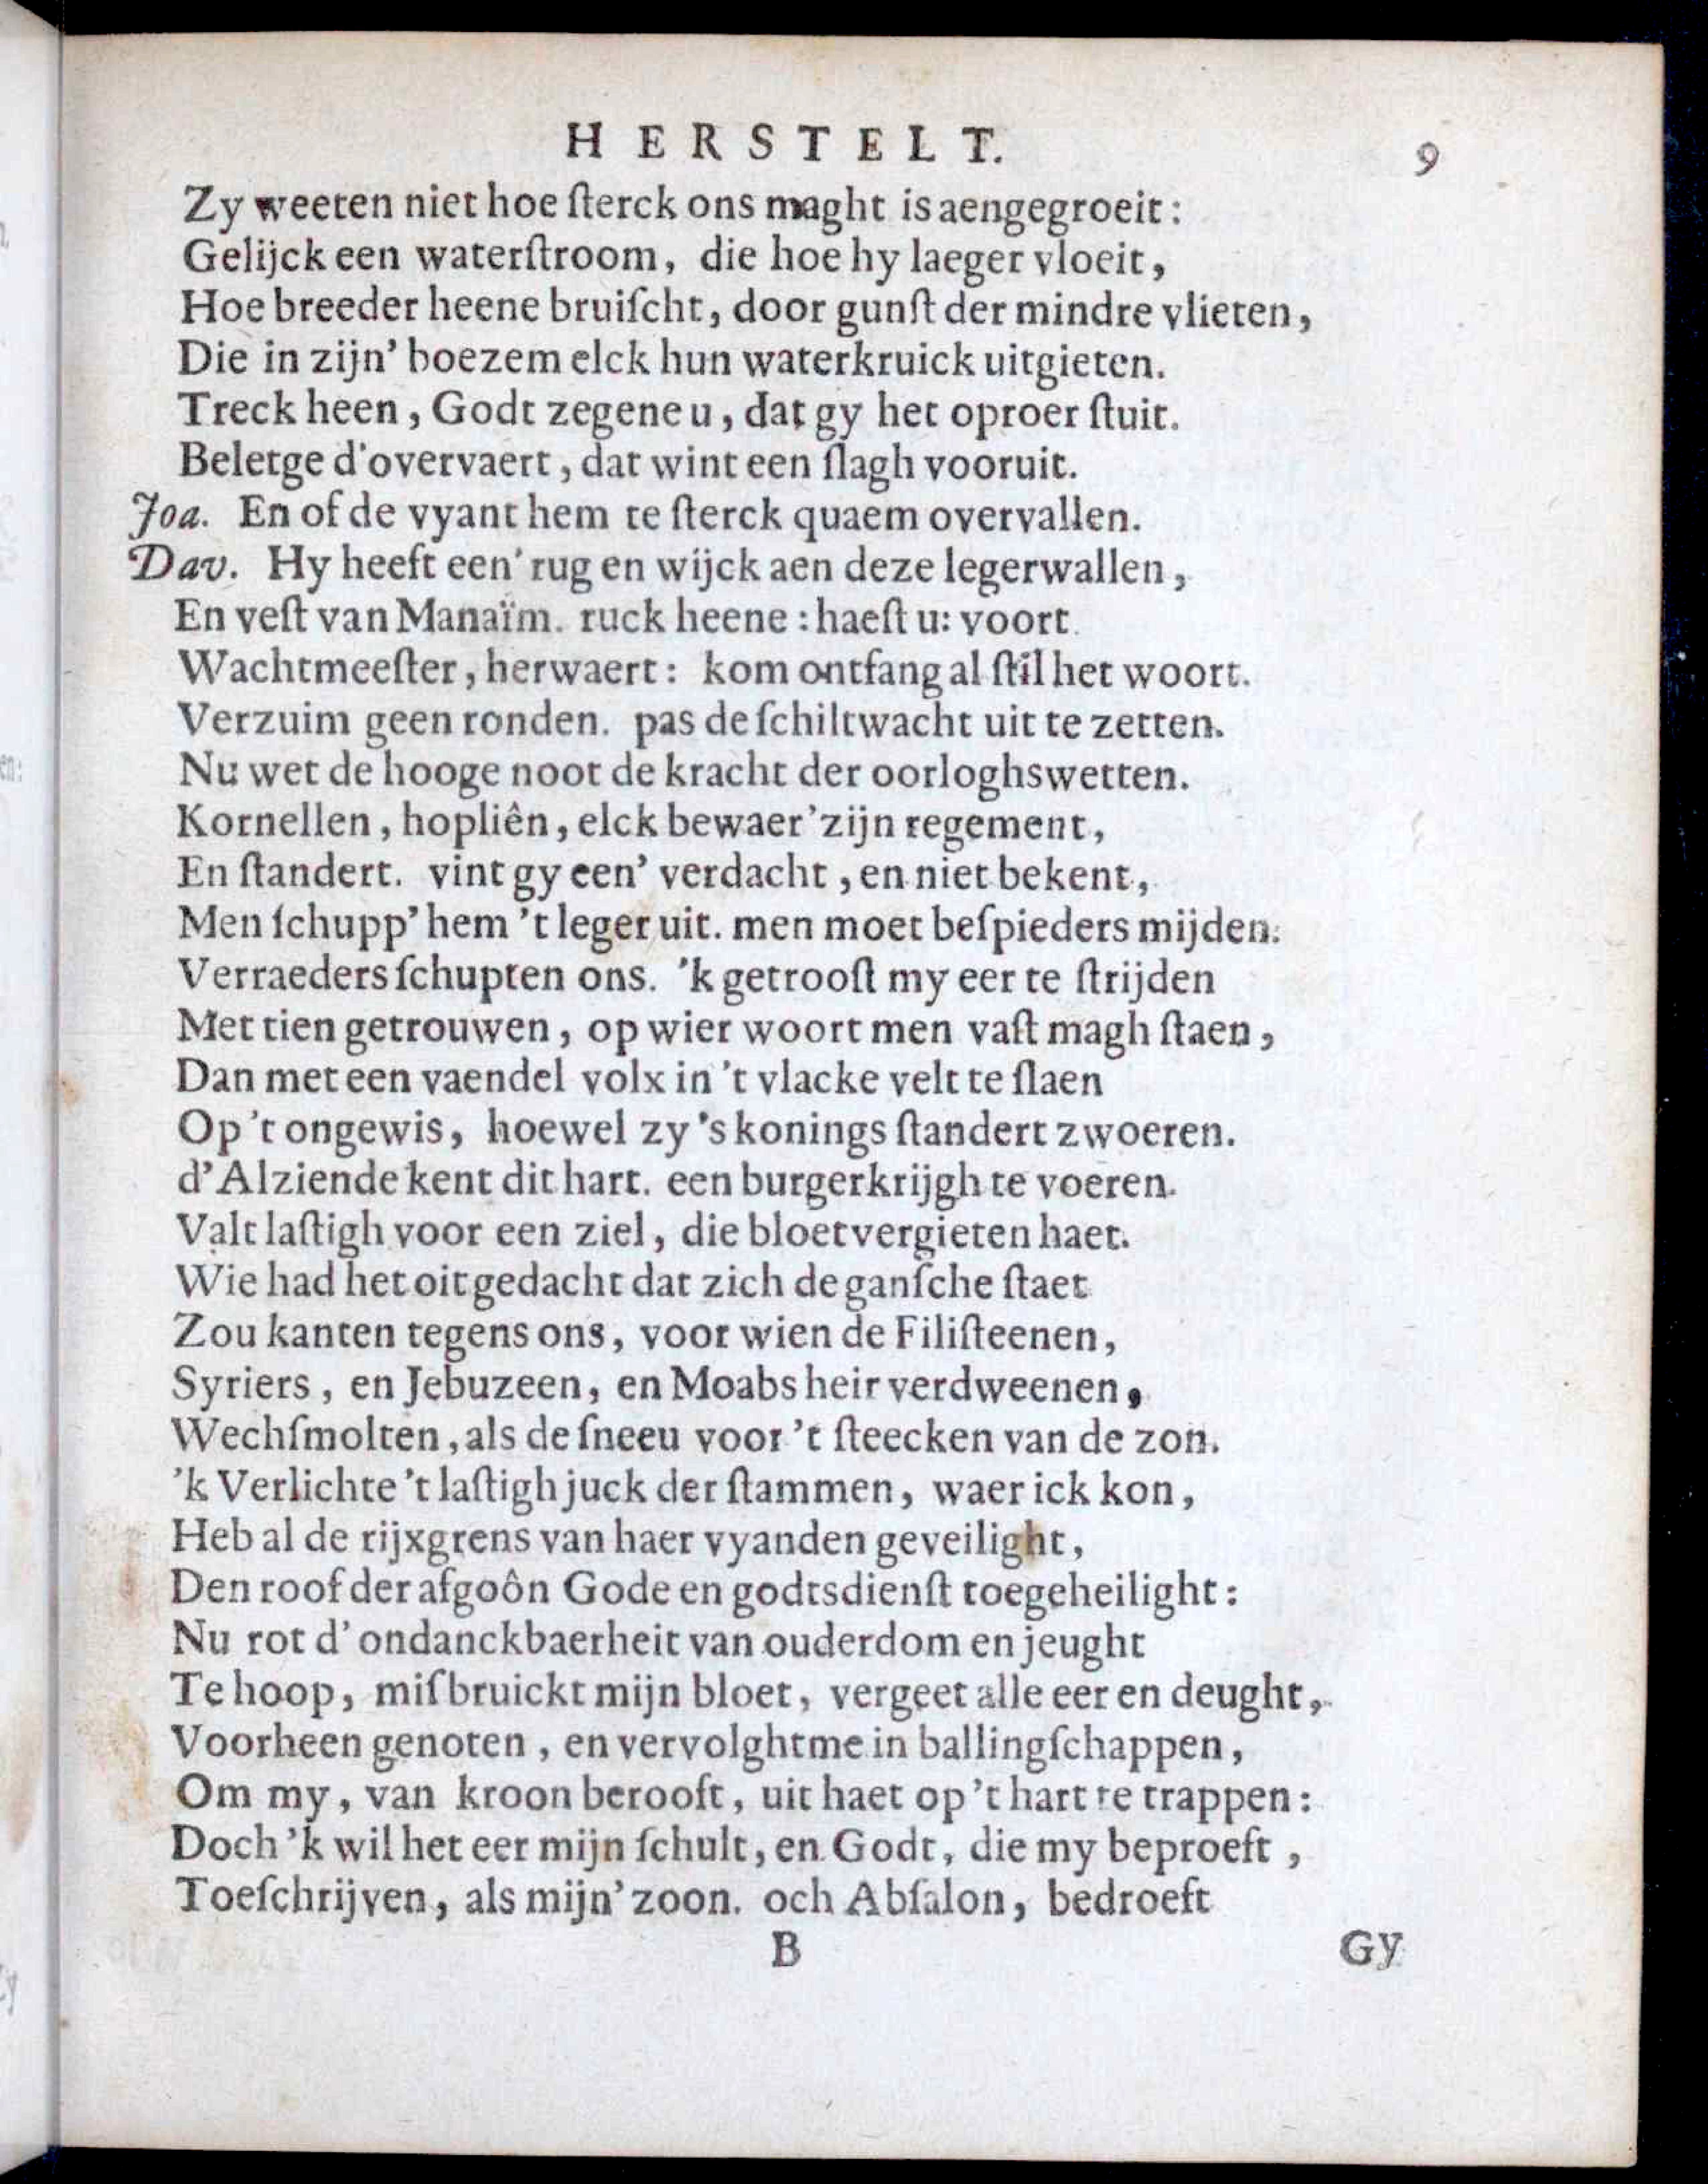 HERSTELT. 9
Zy weeten niet hoe ſterck ons maght is aengegroeit:
Gelijck een waterſtroom, die hoe hy laeger vloeit,
Hoe breeder heene bruiſcht, door gunſt der mindre vlieten,
Die in zijn' boezem elck hun waterkruick uitgieten.
Treck heen, Godt zegene u, dat gy het oproer ſtuit.
Beletge d'overvaert, dat wint een ſlagh vooruit.
Joa. En of de vyant hem te ſterck quaem overvallen.
Dav. Hy heeft een' rug en wijck aen deze legerwallen,
En veſt van Manaïm. ruck heene: haeſt u: voort.
Wachtmeeſter, herwaert: kom ontfang al ſtil het woort.
Verzuim geen ronden. pas de ſchiltwacht uit te zetten.
Nu wet de hooge noot de kracht der oorloghswetten.
Kornellen, hopliên, elck bewaer' zijn regement,
En ſtandert. vint gy een' verdacht, en niet bekent,
Men ſchupp' hem 't leger uit. men moet beſpieders mijden.
Verraeders ſchupten ons. 'k getrooſt my eer te ſtrijden
Met tien getrouwen, op wier woort men vaſt magh ſtaen,
Dan met een vaendel volx in 't vlacke velt te ſlaen
Op 't ongewis, hoewel zy 's konings ſtandert zwoeren.
d'Alziende kent dit hart. een burgerkrijgh te voeren
Valt laſtigh voor een ziel, die bloetvergieten haet.
Wie had het oit gedacht dat zich de ganſche ſtaet
Zou kanten tegens ons, voor wien de Filiſteenen,
Syriers, en Jebuzeen, en Moabs heir verdweenen,
Wechſmolten, als de ſneeu voor 't ſteecken van de zon.
'k Verlichte 't laſtigh juck der ſtammen, waer ick kon,
Heb al de rijxgrens van haer vyanden geveilight,
Den roof der afgoôn Gode en godtsdienſt toegeheilight:
Nu rot d'ondanckbaerheit van ouderdom en jeught
Te hoop, miſbruickt mijn bloet, vergeet alle eer en deught,
Voorheen genoten, en vervolghtme in ballingſchappen,
Om my, van kroon berooft, uit haet op 't hart te trappen:
Doch 'k wil het eer mijn ſchult, en Godt, die my beproeft,
Toeſchrijven, als mijn' zoon. och Abſalon, bedroeft
B Gy